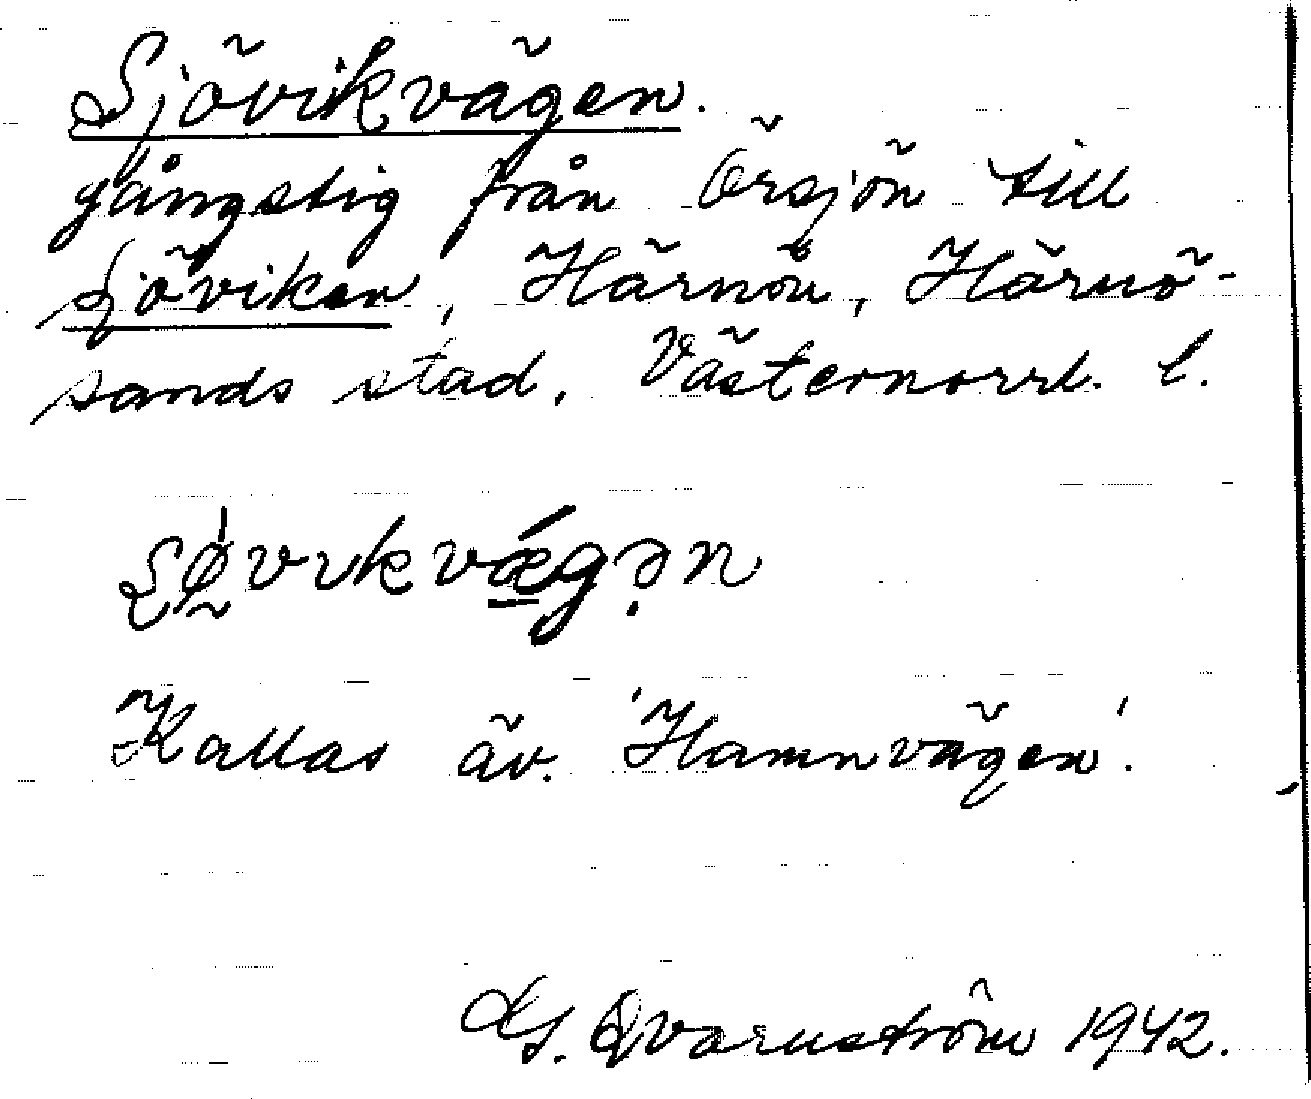 Sjövikvägen.
gångstig från Örsjön till
Sjöviken, Härnön, Härnö-
sands stad, Västernorrl. l.
Kallas äv. 'Hamnvägen'.
Qvarnström 1942.